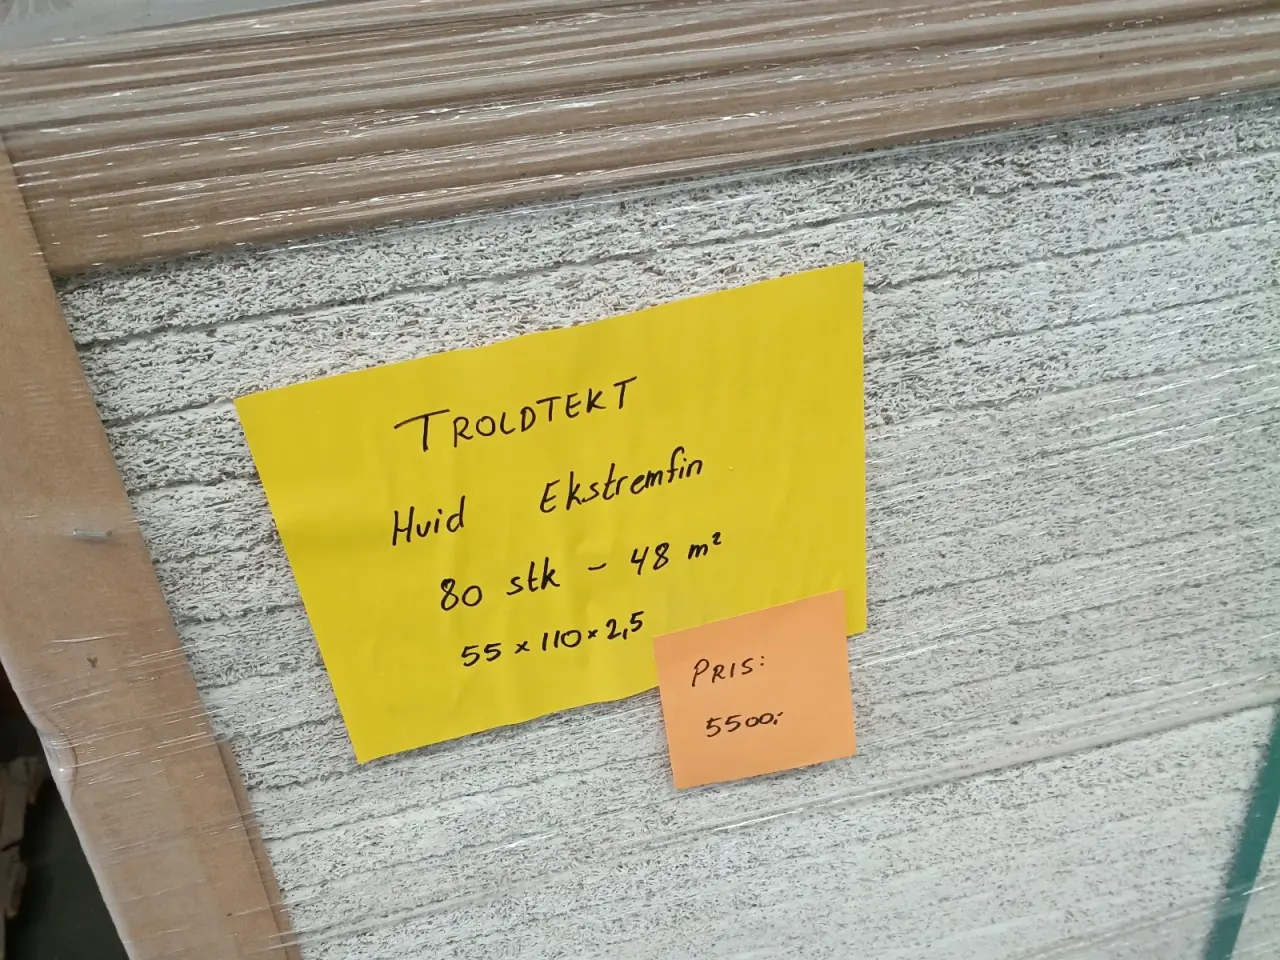 TROLDTEKT
Hvid Ekstremfin
80 stk - 48 m²
55 x 110 x 2,5
PRIS:
5500,-